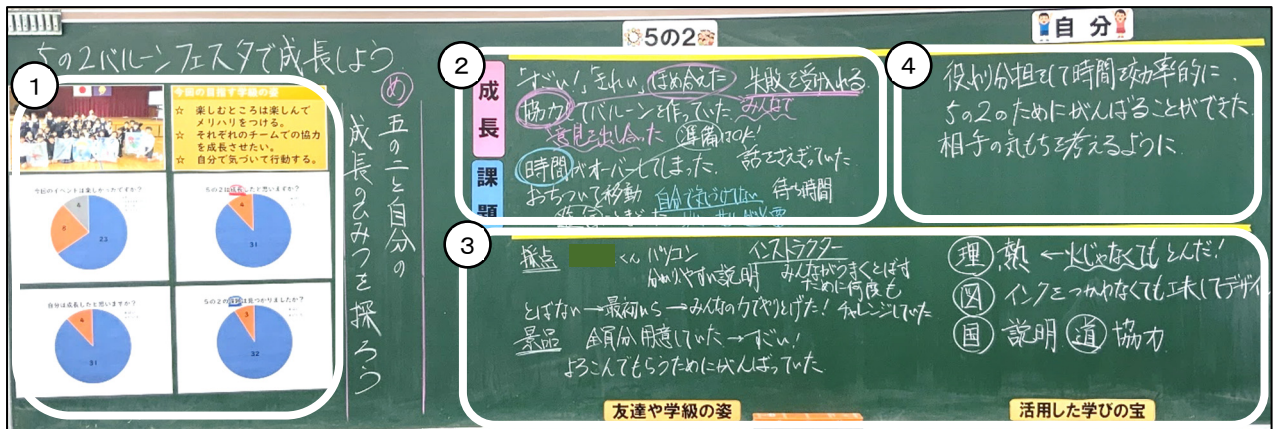 5の2バルーンフェスタで成長しよう
①
今回の目指す学級の姿
☆ 楽しむところは楽しんで
メリハリをつける。
☆ それぞれのチームでの協力
を成長させたい。
☆ 自分で気づいて行動する。
今回のイベントは楽しかったですか?
4
6
23
5の2は成長したと思いますか?
4
31
自分は成長したと思いますか?
4
31
5の2の課題は見つかりましたか?
3
32
め 五の二と自分の
成長のひみつを探ろう
5の2
②
成長
「すごい!」「きれい」ほめ合えた 失敗を受け入れる
協力してバルーンを作っていた みんなで
意見を出し合った 準備はOK!
課題
時間がオーバーしてしまった 話をさえぎっていた
おちついて移動 自分で気づけてない 待ち時間
自分
④
役わり分担をして時間を効率的に
5の2のためにがんばることができた
相手の気もちを考えるように
③
採点 くん パソコン インストラクター
わかりやすい説明 みんながうまくとばす
ために何度も
とばない→最初から→みんなの力でやりとげた! チャレンジしていた
景品 全員分用意していた→すごい!
よろこんでもらうためにがんばっていた
友達や学級の姿
理 熱 ←火じゃなくてもとんだ!
図 インクをつかわなくても工夫してデザイ
国 説明 道 協力
活用した学びの宝